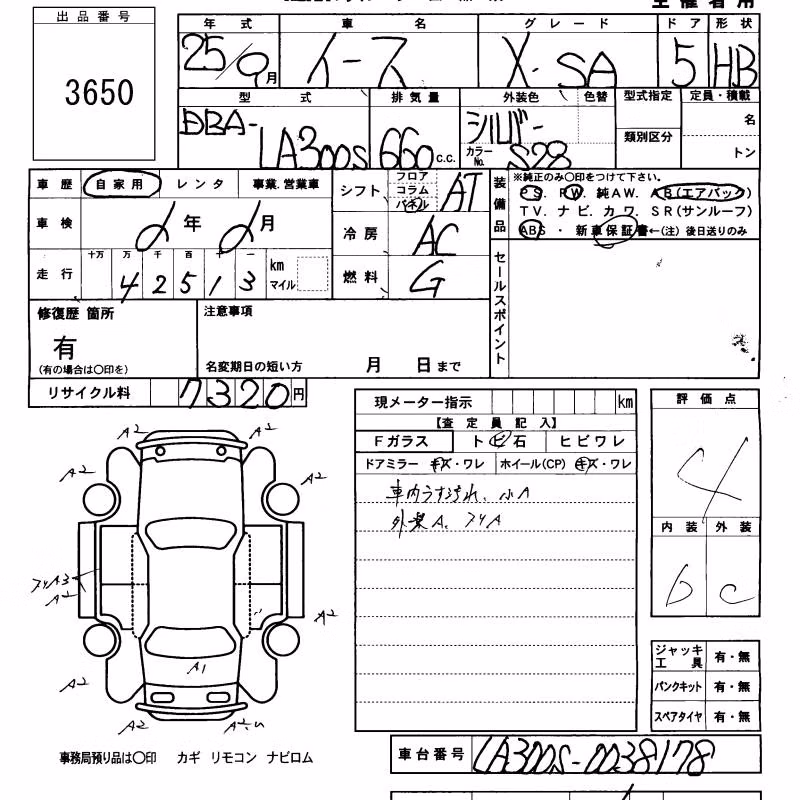 出品番号
3650
年式 車名 グレード ドア 形状
25/9月 イース X・SA 5 HB
型式 排気量 外装色 色替 型式指定 定員・積載
DBA-LA300S 660 c.c. シルバー カラーNo. S28 類別区分 名 トン
車歴 自家用 レンタ 事業.営業車
車検 年 月
走行 十万 万 千 百 十 一 km マイル
4 2 5 1 3
シフト フロア コラム パネル AT
冷房 AC
燃料 G
装備品
※純正のみ〇印をつけて下さい。
PS. PW. 純AW. AB(エアバック)
TV. ナビ. カワ. SR(サンルーフ)
ABS ・ 新車保証書←(注) 後日送りのみ
セールスポイント
修復歴 箇所
有
(有の場合は〇印を)
注意事項
名変期日の短い方 月 日まで
リサイクル料 7320円
現メーター指示 km
【査定員記入】
Fガラス トビ石 ヒビワレ
ドアミラー キズ・ワレ ホイール(CP) キズ・ワレ
車内うすよごれ、小A
外装A、スリA
評価点
4
内装 外装
b c
ジャッキ工具 有・無
パンクキット 有・無
スペアタイヤ 有・無
A2 A2
A2 A2
スリA3
A2
A2
A1
A2 A2
A2
事務局預り品は〇印 カギ リモコン ナビロム
車台番号 LA300S-0038178